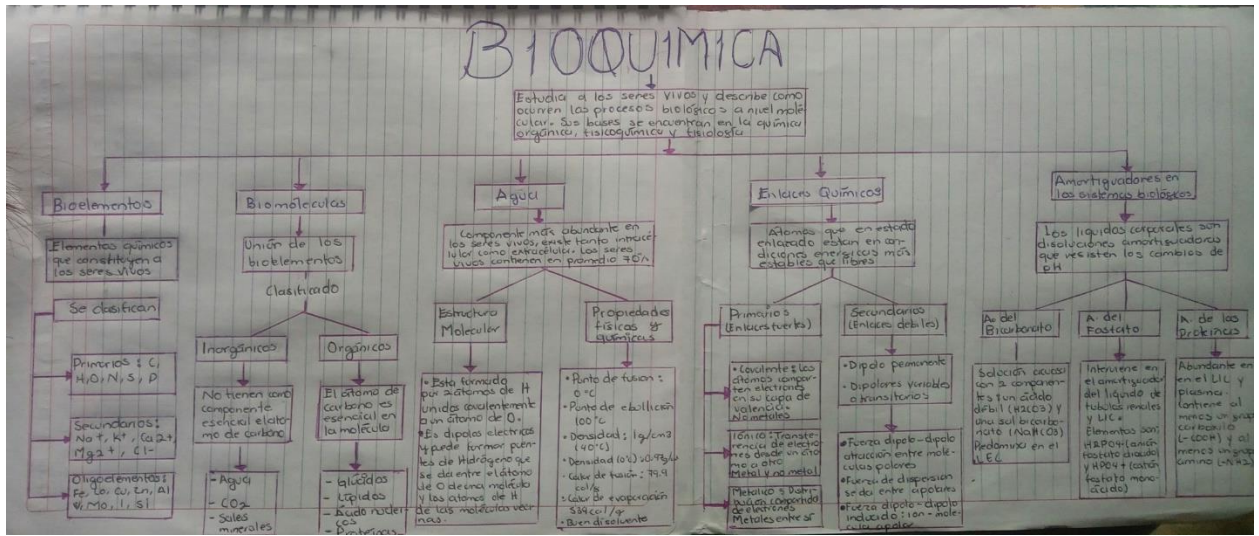 BIOQUIMICA
Estudia a los seres vivos y describe como
ocurren los procesos biológicos a nivel molé-
cular. Sus bases se encuentran en la química
orgánica, fisicoquímica y fisiología
Bioelementos
Elementos químicos
que constituyen a
los seres vivos
Se clasifican
Primarios: C,
H, O, N, S, P
Secundarios:
Na+, K+, Ca2+,
Mg2+, Cl-
Oligoelementos:
Fe, Co, Cu, Zn, Al
Mo, I, Si
Biomoléculas
Unión de los
bioelementos
Clasificado
Inorgánicos
No tienen como
componente
esencial el áto-
mo de carbono
- Agua
- CO2
- Sales
minerales
Orgánicos
El átomo de
carbono es
esencial en
la molécula
- Glúcidos
- Lípidos
- Ácido nuclei-
cos
- Proteínas
Agua
Componente más abundante en
los seres vivos, existe tanto intracé-
lular como extracélular. Los seres
vivos contienen en promedio 70%
Estructura
Molecular
• Esta formado
por 2 átomos de H
unidos covalentemente
a un átomo de O.
• Es dipolo electrico
y puede formar puen-
tes de Hidrógeno que
se da entre el átomo
de O de una molécula
y los átomos de H
de las moléculas veci-
nas.
Propiedades
físicas y
químicas
• Punto de fusion:
0°C
• Punto de ebullición
100°C
• Densidad: 1g/cm3
(40°C)
• Densidad (0°C):
• Calor de fusión: 79.9
cal/g
• Calor de evaporación
539 cal/g
• Buen disolvente
Enlaces Químicos
Átomos que en estado
enlazado estan en con-
diciones energeticas más
estables que libres
Primarios
(Enlaces fuertes)
• Covalente: Los
átomos compar-
ten electrones
en su capa de
valencia.
No metales
Iónico: Transfe-
rencia de electro-
nes desde un áto-
mo a otro
Metal y no metal
Metalico: Distri-
bución compartida
de electrones
Metales entre sí
Secundarios
(Enlaces debiles)
• Dipolo permanente
• Dipolores variables
o transitorios
• Fuerza dipolo-dipolo
atracción entre molé-
culas polores
• Fuerza de dispersion
se da entre apolares
• Fuerza dipolo-dipolo
inducido: ion-mole-
cula apolar
Amortiguadores en
los sistemas biológicos
Los liquidos corporales son
disoluciones amortiguadoras
que resisten los cambios de
pH
A. del
Bicarbonato
Solución acuosa
con 2 componen-
tes: un ácido
débil (H2CO3) y
una sal bicarbo-
nato (NaHCO3)
Predomina en el
LEC
A. del
Fosfato
Interviene en
el amortiguador
del liquido de
tubulos renales
y LIC.
Elementos son:
H2PO4-(anión
fosfato diacido)
y HPO4-(anión
fosfato mono-
ácido)
A. de las
Proteínas
Abundante en
en el LIC y
plasma.
Contiene al
menos un grupo
carboxilo
(-COOH) y al
menos un grupo
amino (-NH2)